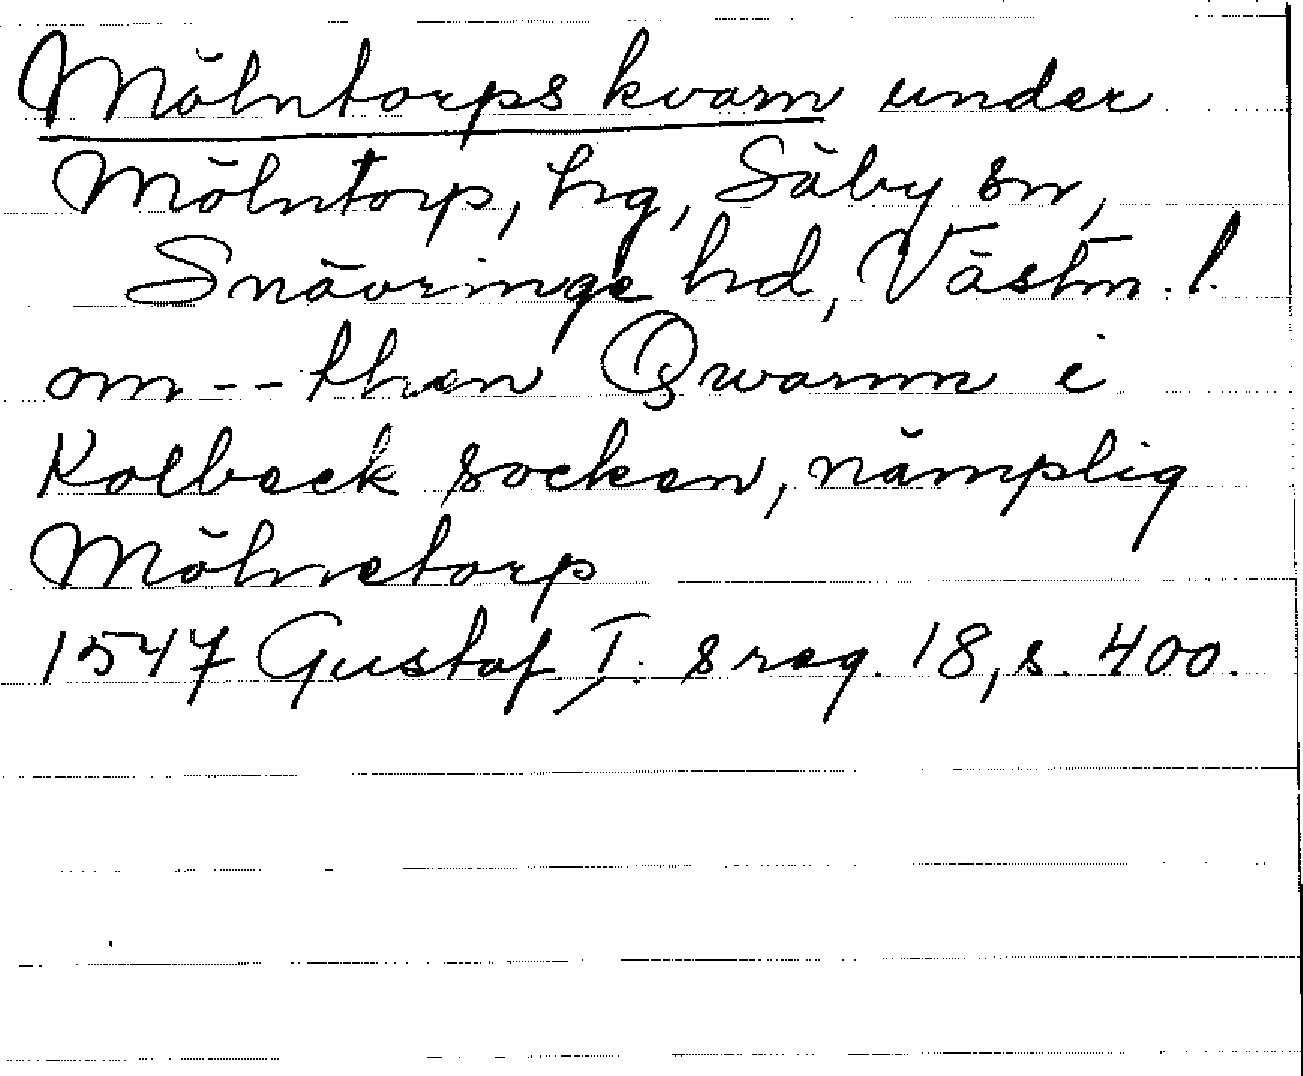 Mölntorps kvarn under
Mölntorp, hg, Säby sn,
Snävringe hd, Västm. l.
om -- then Qwarnn i
Kolbeck socken, nämplig
Mölnetorp
1547 Gustaf I. s reg. 18, s. 400.